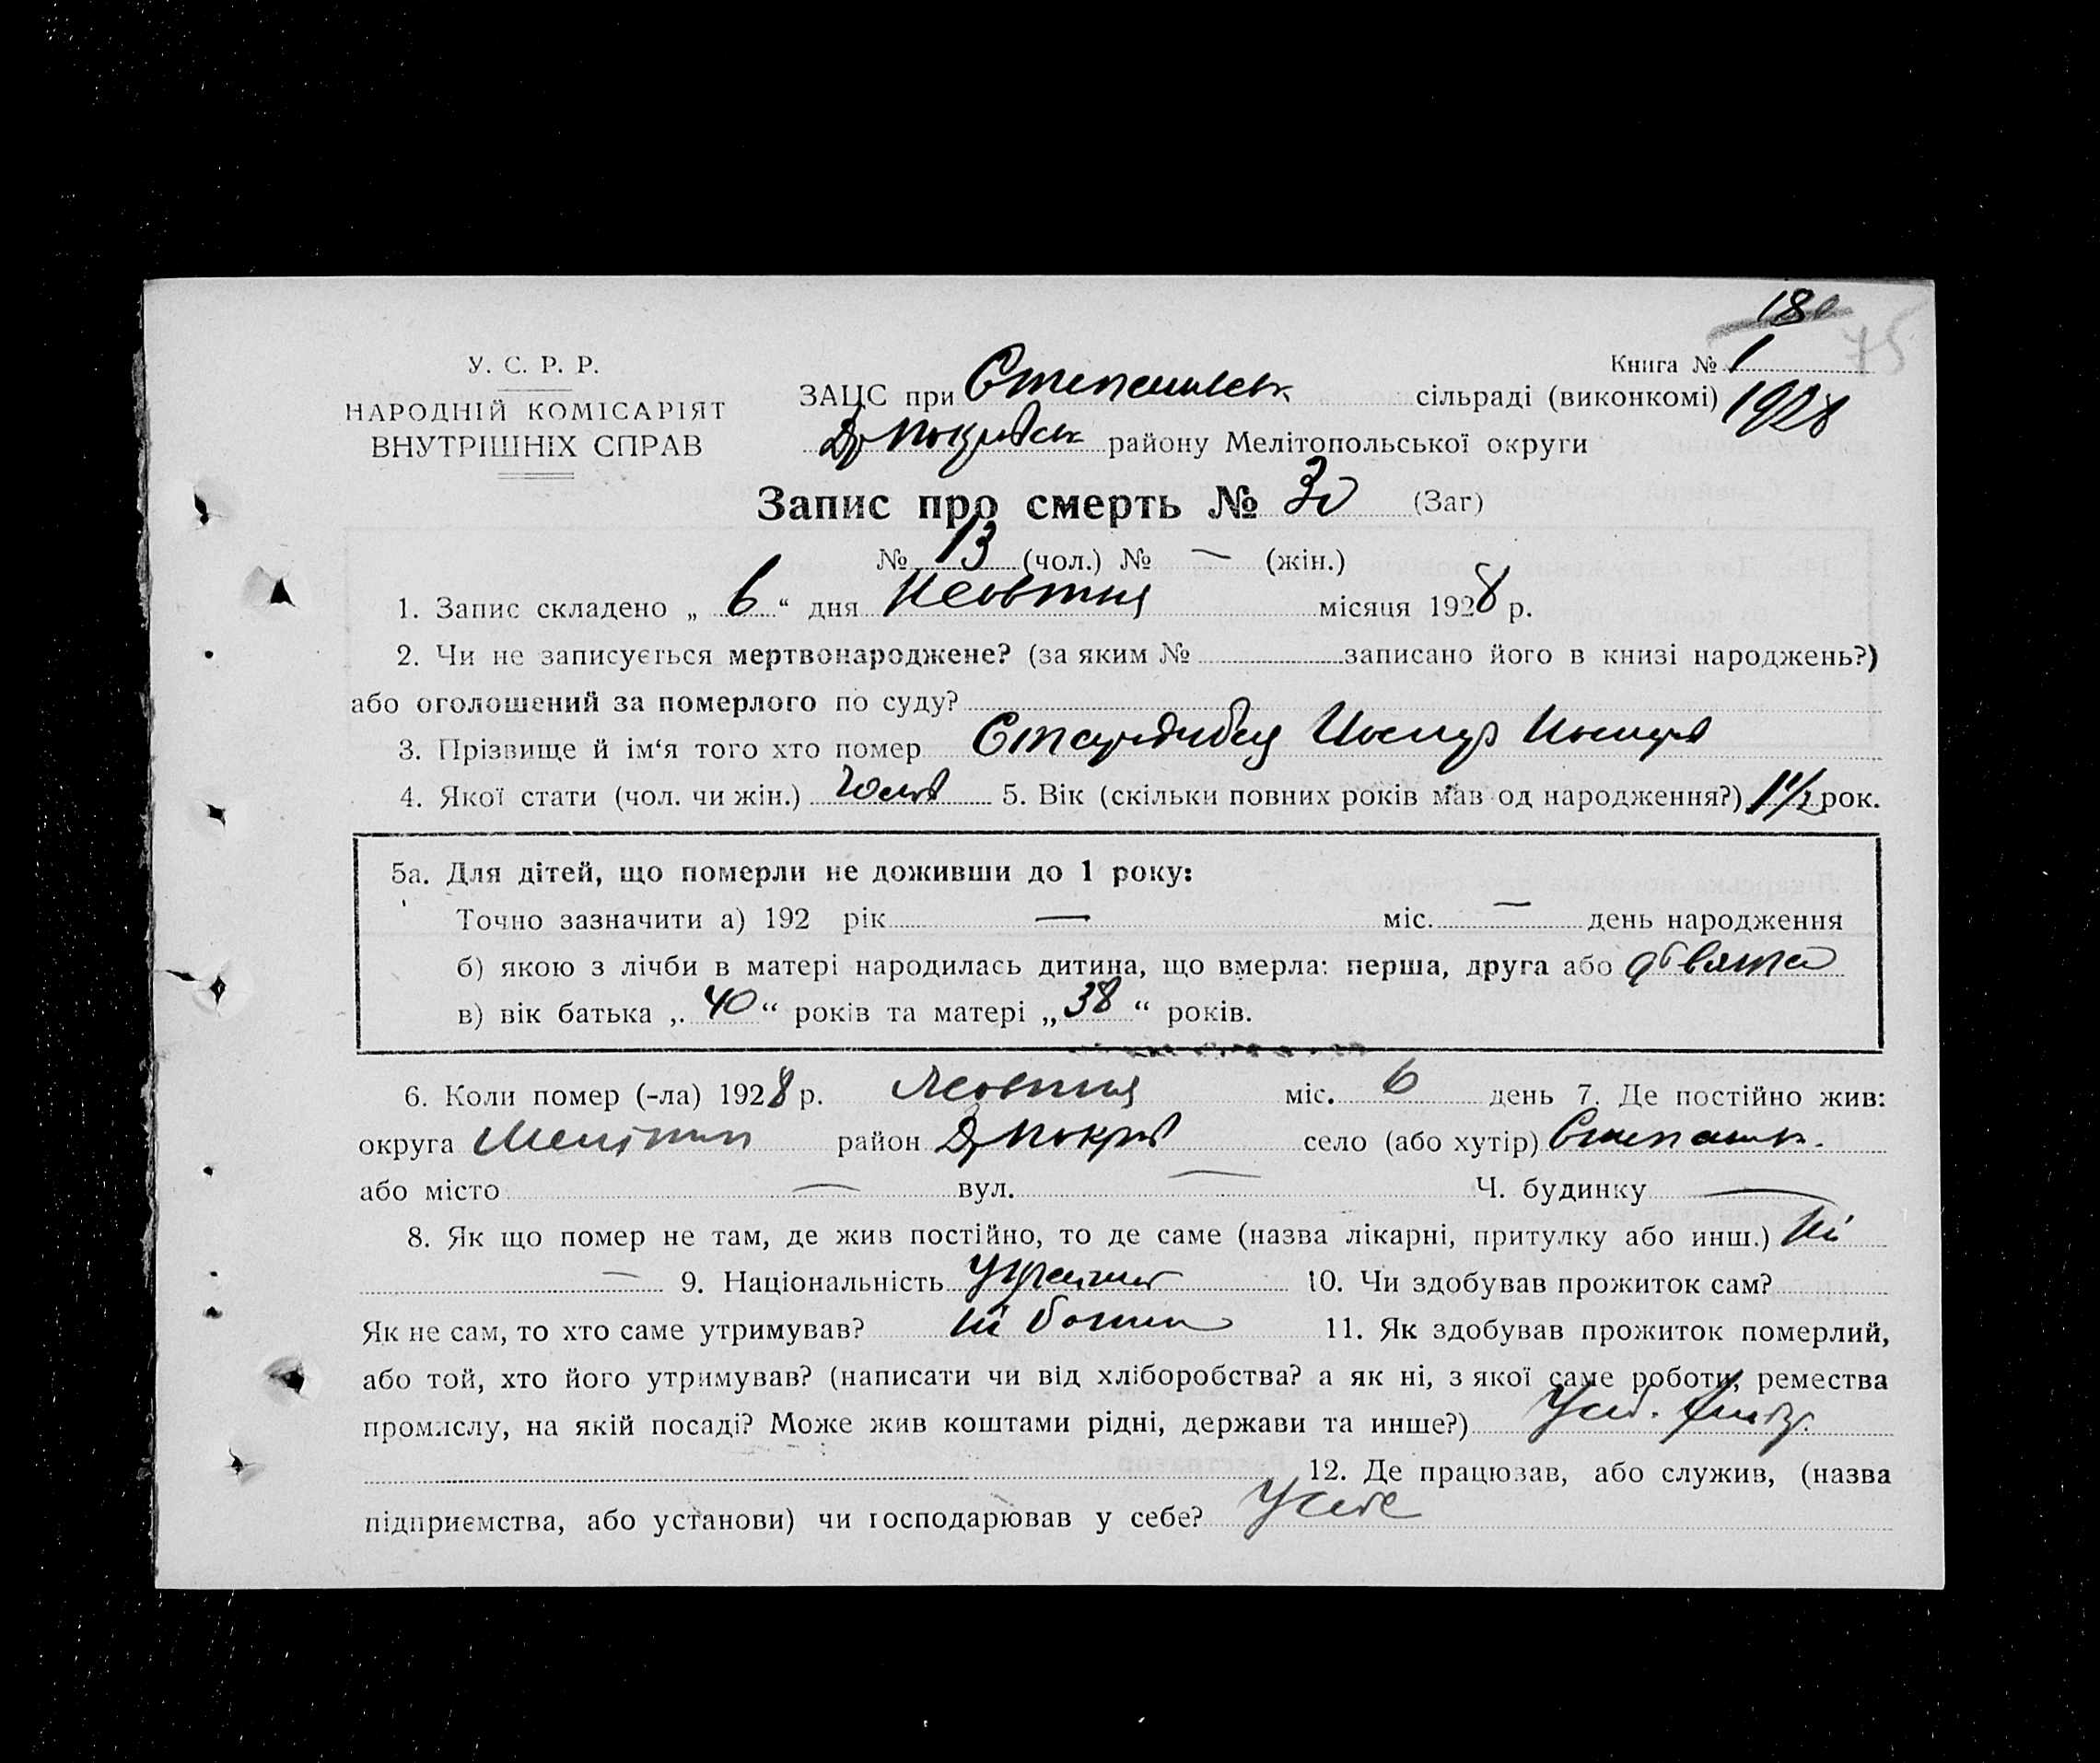 180
75
У. С. Р. Р.
Книга № 1
НАРОДНІЙ КОМІСАРІЯТ
ВНУТРІШНІХ СПРАВ
ЗАЦС при Степанівськ сільраді (виконкомі) 1928
Др Покровськ району Мелітопольської округи
Запис про смерть № 30 (Заг)
№ 13 (чол.) № — (жін.)
1. Запис складено „ 6 “ дня Жовтня місяця 1928 р.
2. Чи не записується мертвонароджене? (за яким № записано його в книзі народжень?)
або оголошений за померлого по суду?
3. Прізвище й ім‘я того хто помер
4. Якої стати (чол. чи жін.) Чолов 5. Вік (скільки повних років мав од народження?) 1 1/2 рок.
5а. Для дітей, що померли не доживши до 1 року:
Точно зазначити а) 192 рік — міс. — день народження
б) якою з лічби в матері народилась дитина, що вмерла: перша, друга або
в) вік батька „ 40 “ років та матері „ 38 “ років.
6. Коли помер (-ла) 1928 р. Жовтня міс. 6 день 7. Де постійно жив:
округа Меліт район Др Покров село (або хутір) Степанів.
або місто — вул. — Ч. будинку —
8. Як що помер не там, де жив постійно, то де саме (назва лікарні, притулку або инш.) Ні
— 9. Національність Україн 10. Чи здобував прожиток сам?
Як не сам, то хто саме утримував? ні батьки 11. Як здобував прожиток померлий,
або той, хто його утримував? (написати чи від хліборобства? а як ні, з якої саме роботи, ремества
промислу, на якій посаді? Може жив коштами рідні, держави та инше?)
12. Де працював, або служив, (назва
підприємства, або установи) чи господарював у себе? У себе